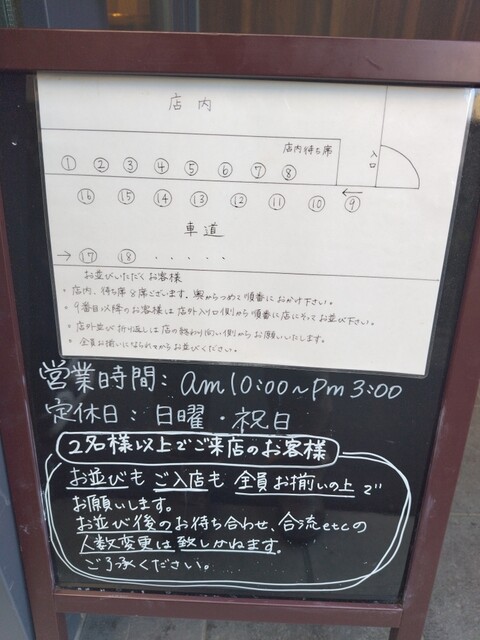 店内
店内待ち席
入口
① ② ③ ④ ⑤ ⑥ ⑦ ⑧
←
⑯ ⑮ ⑭ ⑬ ⑫ ⑪ ⑩ ⑨
車道
→ ⑰ ⑱ ・・・・・
お並びいただくお客様
・店内、待ち席8席ございます。奥からつめて順番におかけ下さい。
・9番目以降のお客様は店外入り口側から順番に店にそってお並び下さい。
・店外並び折り返しは店の終わり向い側からお願いいたします。
・全員お揃いになられてからお並びください。
営業時間：am10:00〜pm3:00
定休日：日曜・祝日
2名様以上でご来店のお客様
お並びもご入店も全員お揃いの上で
お願いします。
お並び後のお待ち合わせ、合流etcの
人数変更は致しかねます。
ご了承ください。